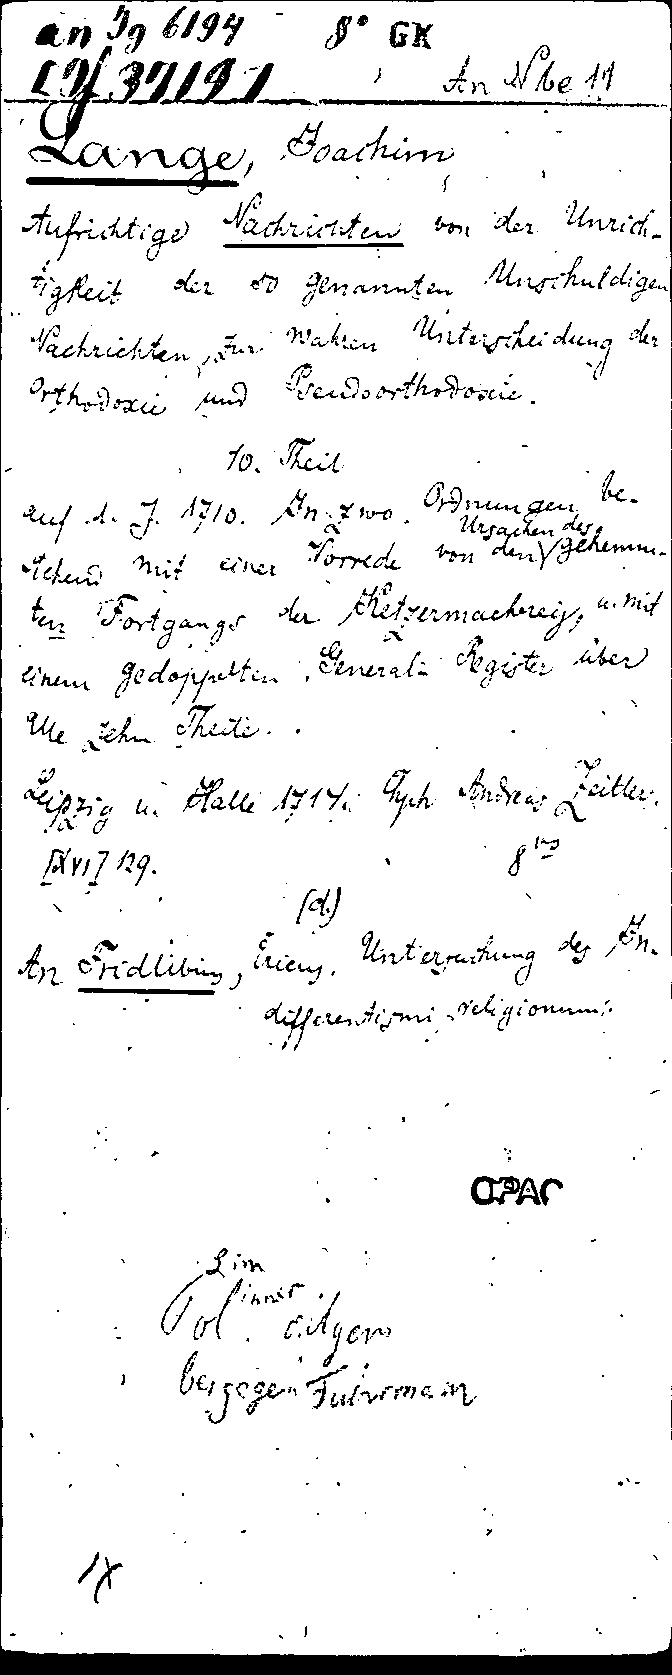 an Ig 6194 8° GK
37197 An Nbe 11
Lange, Joachim,
Aufrichtige Nachrichten von der Unrich-
tigkeit der so genannten Unschuldigen
Nachrichten, zur wahren Unterscheidung der
Orthodoxie und Pseudoorthodoxie.
10. Theil
auf d. J. 1710. In zwo Ordnungen be-
Ursachen des
stehend mit einer Vorrede von den gehemm-
ten Fortgangs der Ketzermacherey, u. mit
einem gedoppelten General= Register über
alle zehn Theile.
Leipzig u. Halle 1714: Typh Andreas Zeitler.
[XVI] 129. 8vo
(d.)
An Fridlibius, Ericus, Untersuchung des In-
differentismi religionum.
OPAC
Pol.
Fuhrmann